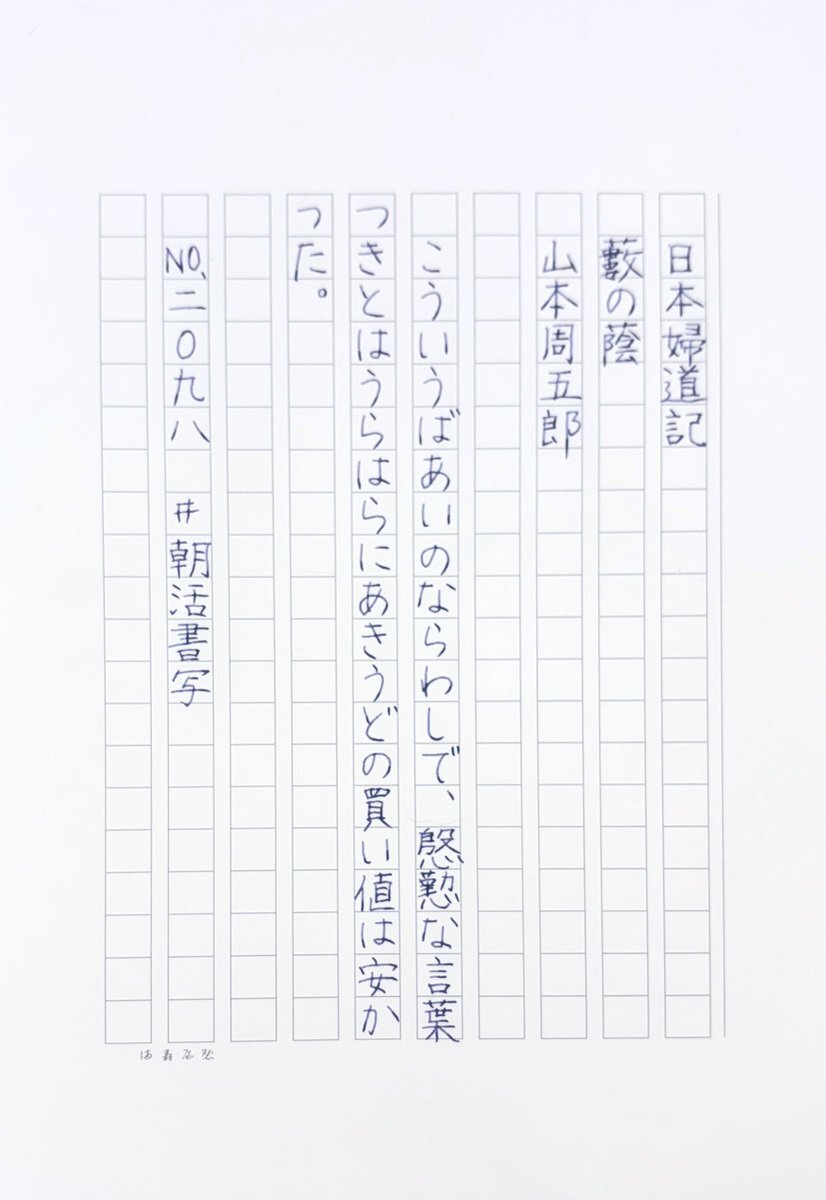 日本婦道記
藪の蔭
山本周五郎
こういうばあいのならわしで、慇懃な言葉
つきとはうらはらにあきうどの買い値は安か
った。
NO.二0九八 #朝活書写